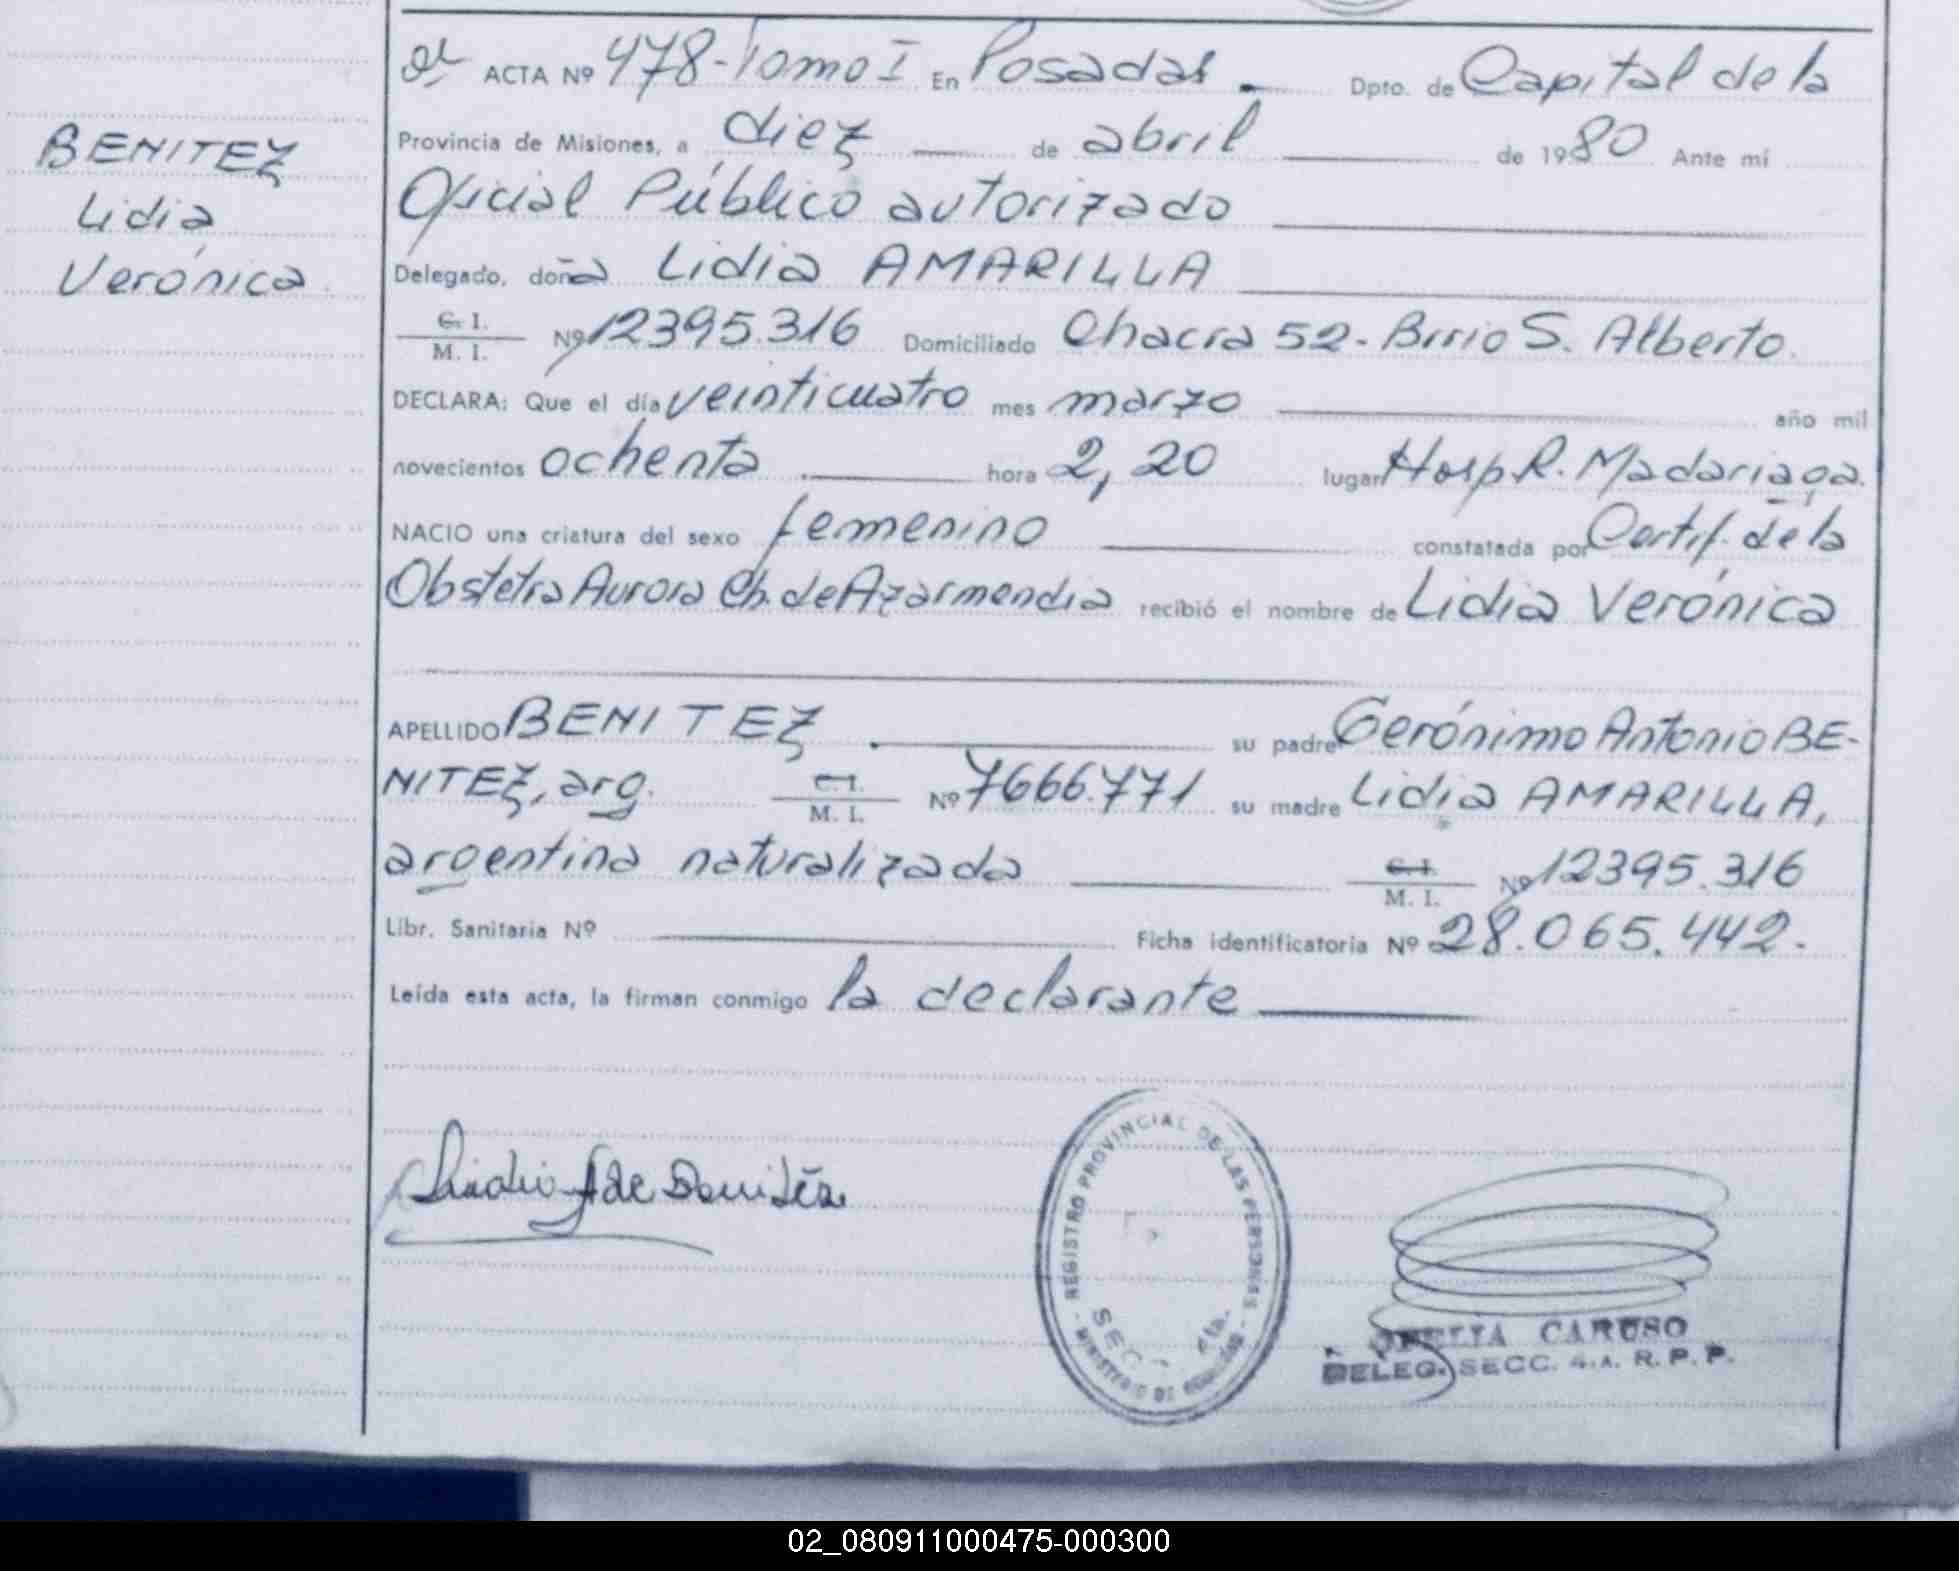 BENITEZ
Lidia
Verónica
ACTA Nº 478-Tomo I En Posadas. Dpto. de Capital de la
Provincia de Misiones, a diez de abril de 1980 Ante mí
Oficial Público autorizado
Delegado, doña Lidia AMARILLA
C. I.
M. I. Nº 12395.316 Domiciliado Chacra 52- Brrio S. Alberto.
DECLARA: Que el día veinticuatro mes marzo año mil
novecientos ochenta hora 2,20 lugar Hosp R. Madariaga.
NACIO una criatura del sexo femenino constatada por Certif. de la
Obstetra Aurora Ch. de Azarmendia recibió el nombre de Lidia Verónica
APELLIDO BENITEZ su padre Gerónimo Antonio BE-
NITEZ, arg. C. I. M. I. Nº 7666.771 su madre Lidia AMARILLA,
argentina naturalizada C. I. M. I. Nº 12395.316
Libr. Sanitaria Nº Ficha identificatoria Nº 28.065.442.
Leída esta acta, la firman conmigo la declarante
REGISTRO PROVINCIAL DE LAS PERSONAS
SECC. 4ta.
MINISTERIO DE
OFELIA CARUSO
DELEG. SECC. 4.A. R. P. P.
02_080911000475-000300